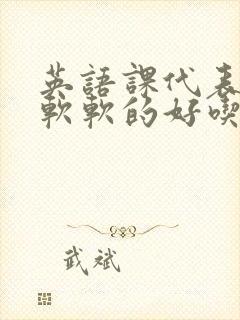 英語課代表
軟軟的好喫
武斌